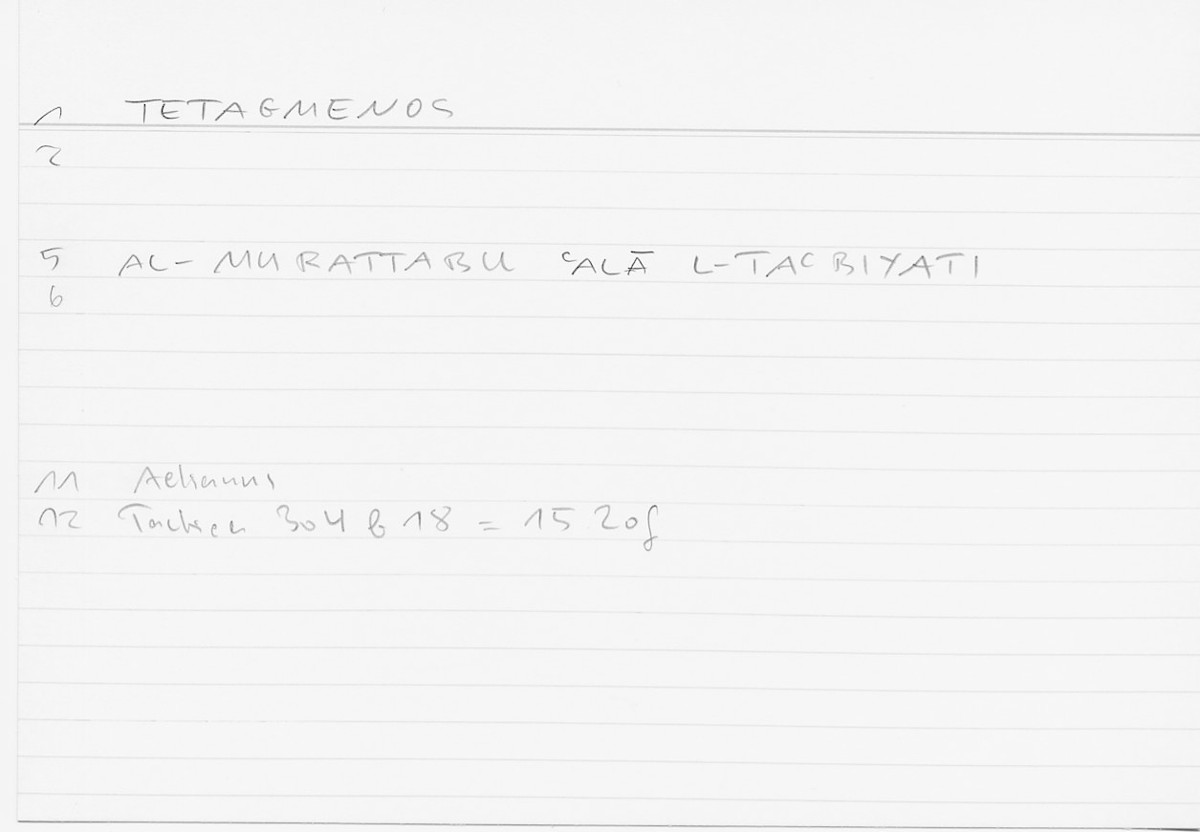 1 TETAGMENOS
2
5 AL-MURATTABU ʿALĀ L-TAʿBIYATI
6
11 Aelianus
12 Tactica 304 b 18 = 15 20f